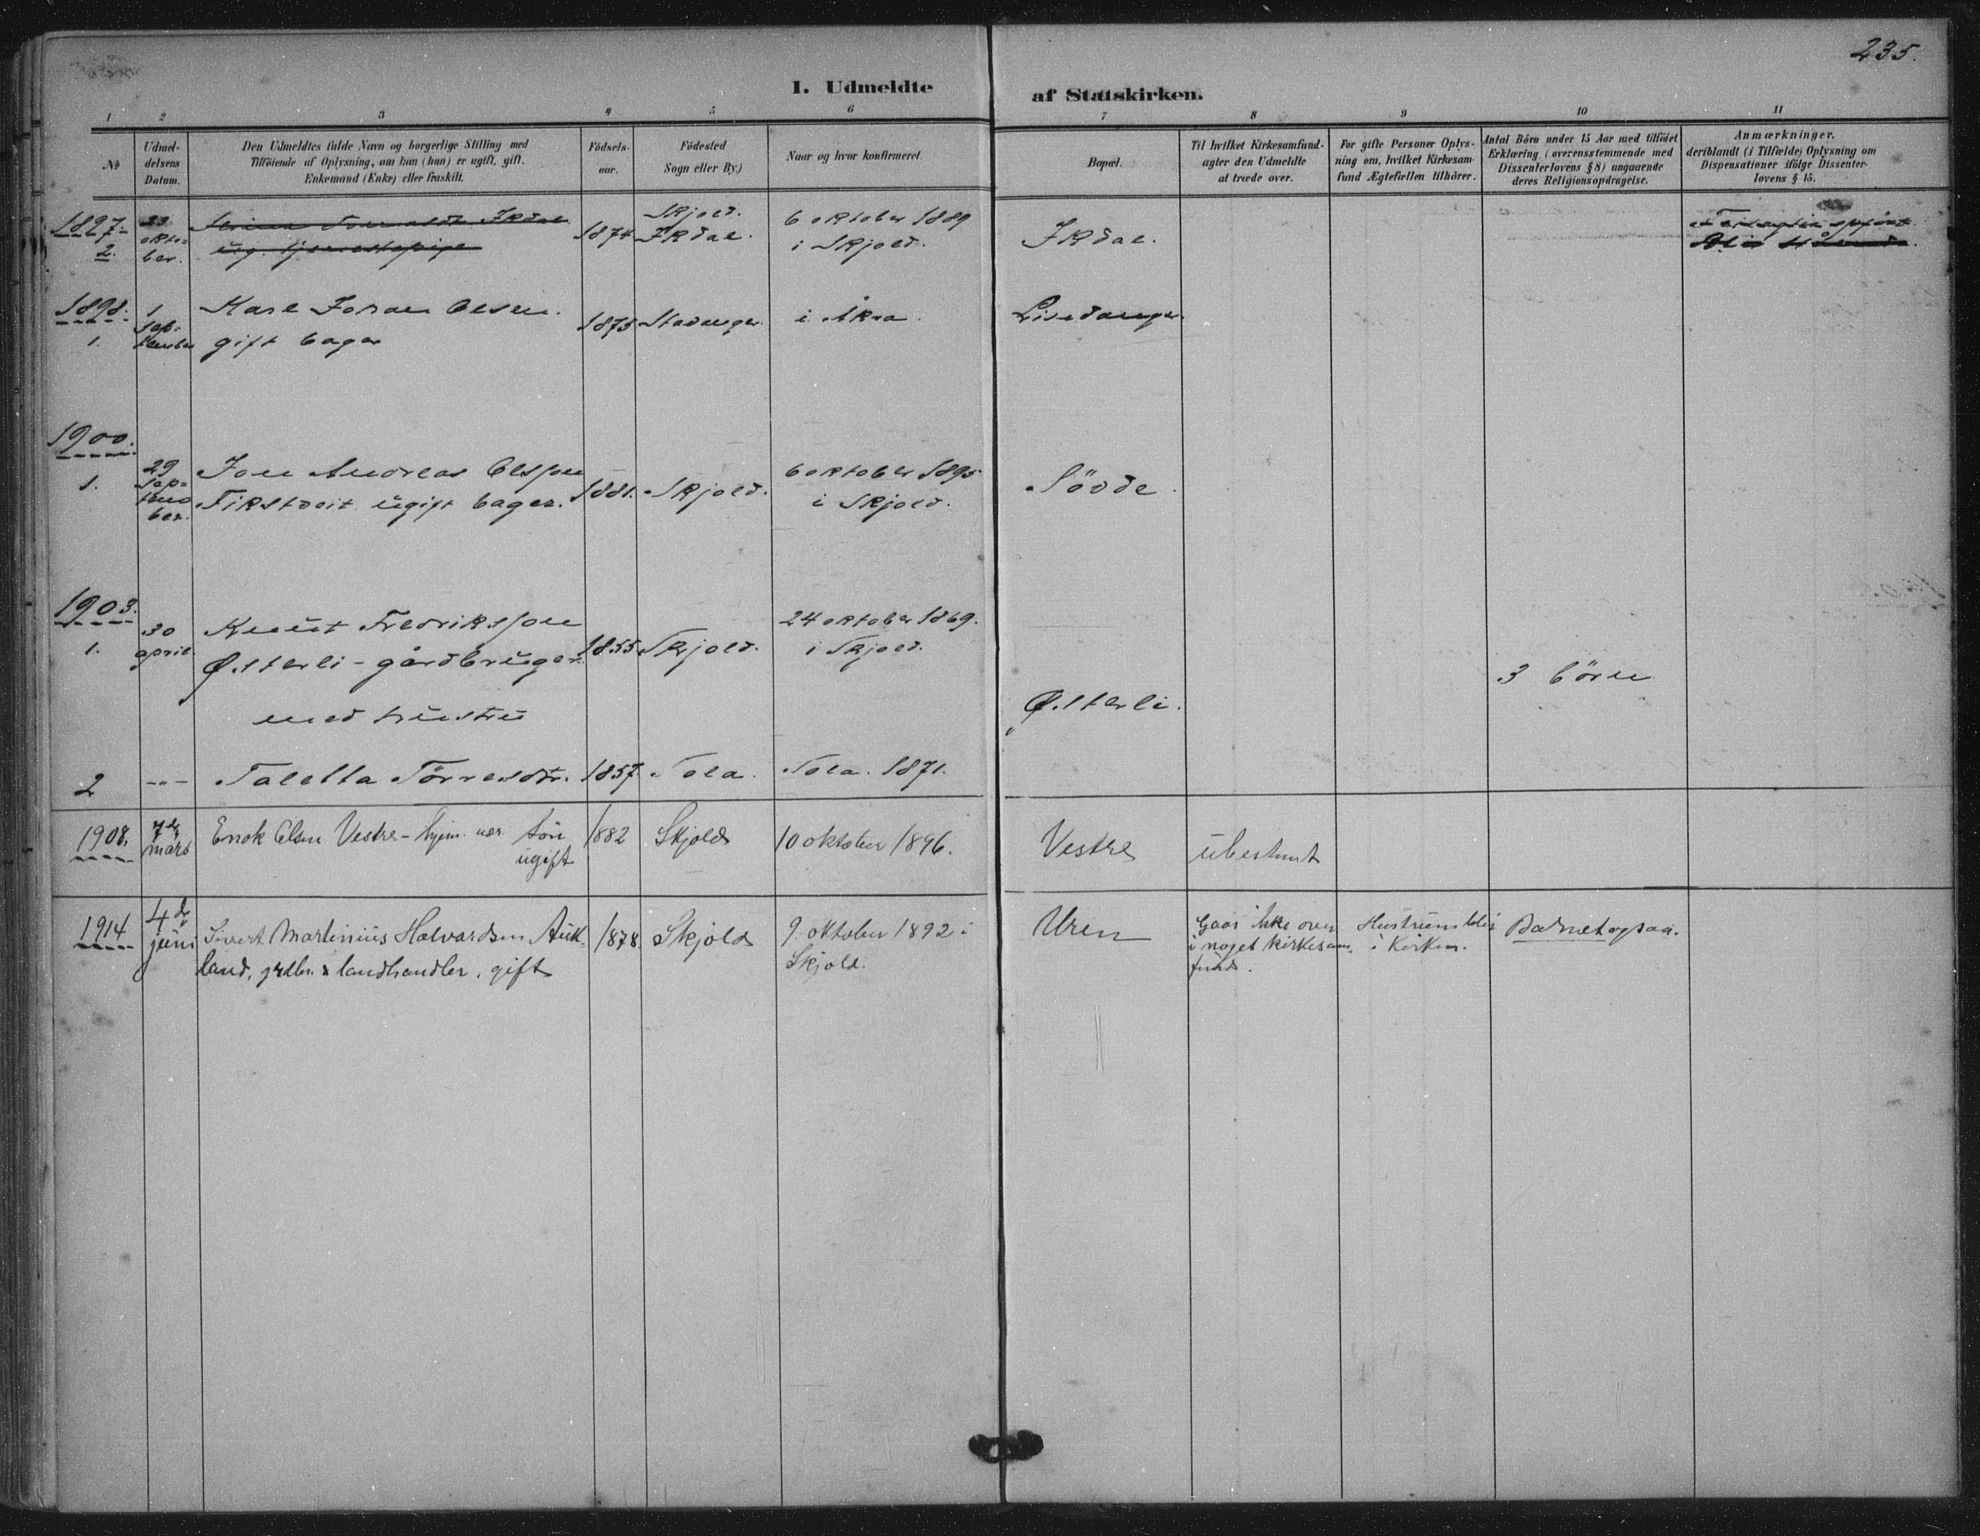 235.
1. Udmeldte af Statskirken.
1 2 3 4 5 6 7 8 9 10 11
No
Udmel-
delsens
Datum.
Den Udmeldtes fulde Navn og borgerlige Stilling med
Tilföiende af Oplysning, om han (hun) er ugift, gift,
Enkemand (Enke) eller fraskilt.
Födsels-
aar.
Födested
Sogn eller By.)
Naar og hvor konfirmeret.
Bopæl.
Til hvilket Kirkesamfund-
agter den Udmeldte
at træde over.
For gifte Personer Oplys-
ning om, hvilket Kirkesam-
fund Ægtefællen tilhörer.
Antal Börn under 15 Aar med tilföiet
Erklæring (overensstemmende med
Dissenterlovens § 8) angaaende
deres Religionsopdragelse.
Anmærkninger,
deriblandt (i Tilfælde) Oplysning om
Dispensationer ifölge Dissenter-
lovens § 15.
1897.
2.
23
okto-
ber.
Ikdal
ug. tjenestepige
1874
Skjold.
Ikdal.
6 oktober 1889
i Skjold.
Ikdal.
1898.
1.
1
Sep-
tember
Karl Johan Olsen.
gift bager
1875
Stavanger.
i Åkra.
1900.
1.
29
Sep-
tem
ber.
Jon Andreas Olsson
Fikstveit ugift bager.
1881.
Skjold.
6 oktober 1895
i Skjold.
Sövde.
1903.
1.
30
april.
Knut Fredriksson
Østerli - gårdbruger
med hustru
1855
Skjold.
24 oktober 1869.
i Skjold.
Østerli.
3 börn
2
---
Taletta Törresdtr.
1857
Sola.
Sola. 1871.
1908.
7de
mars
Enok Olsen Vestre - hjem. vær. sön
ugift
1882
Skjold
10 oktober 1896.
Vestre
ubestemt
1914
4de
juni
Sivert Martinius Halvardsen Auk-
land, grdbr. & landhandler, gift
1878
Skjold
9 oktober 1892 i
Skjold.
Uren
Gaar ikke over
i noget kirkesam-
fund.
Hustruen blir
i Kirken.
Barnet ogsaa.